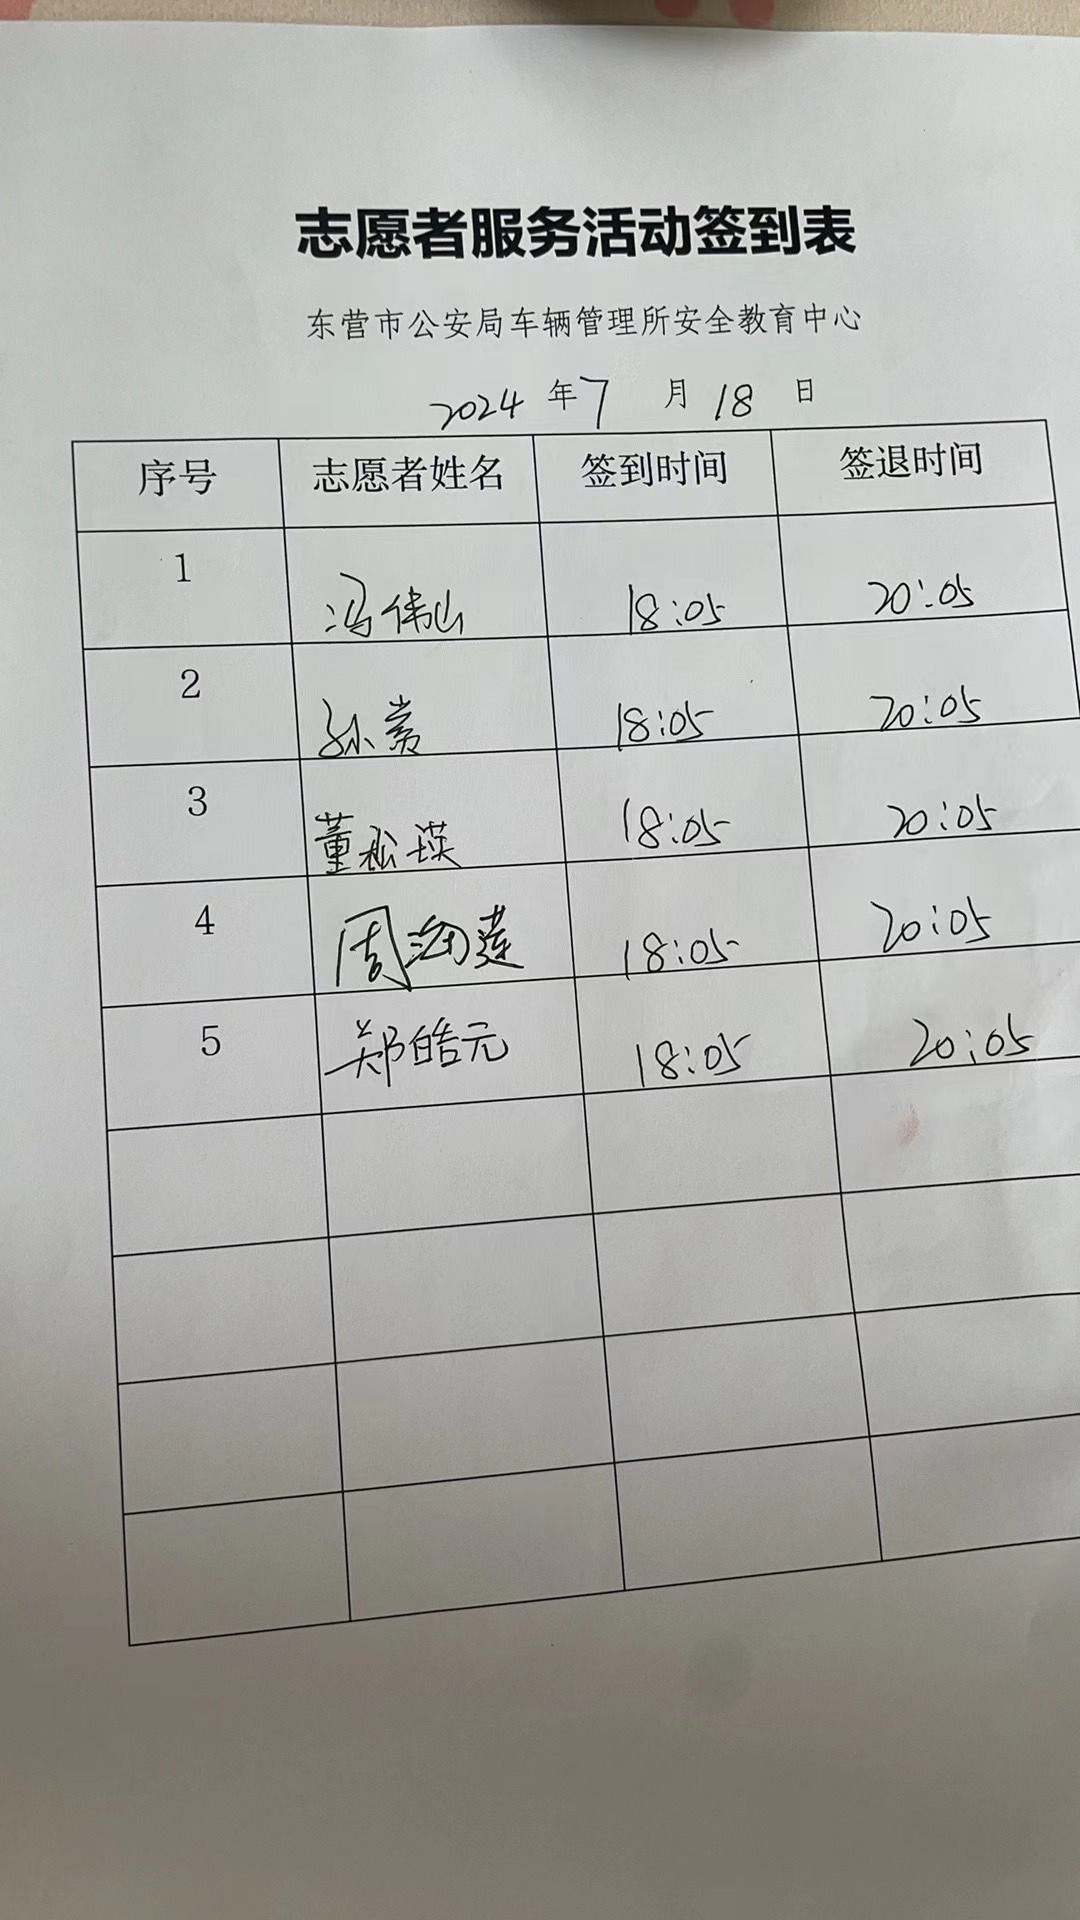 志愿者服务活动签到表
东营市公安局车辆管理所安全教育中心
2024 年 7 月 18 日
序号 志愿者姓名 签到时间 签退时间
1 冯伟山 18:05 20:05
2 孙 18:05 20:05
3 董松瑛 18:05 20:05
4 周海莲 18:05 20:05
5 郑皓元 18:05 20:05